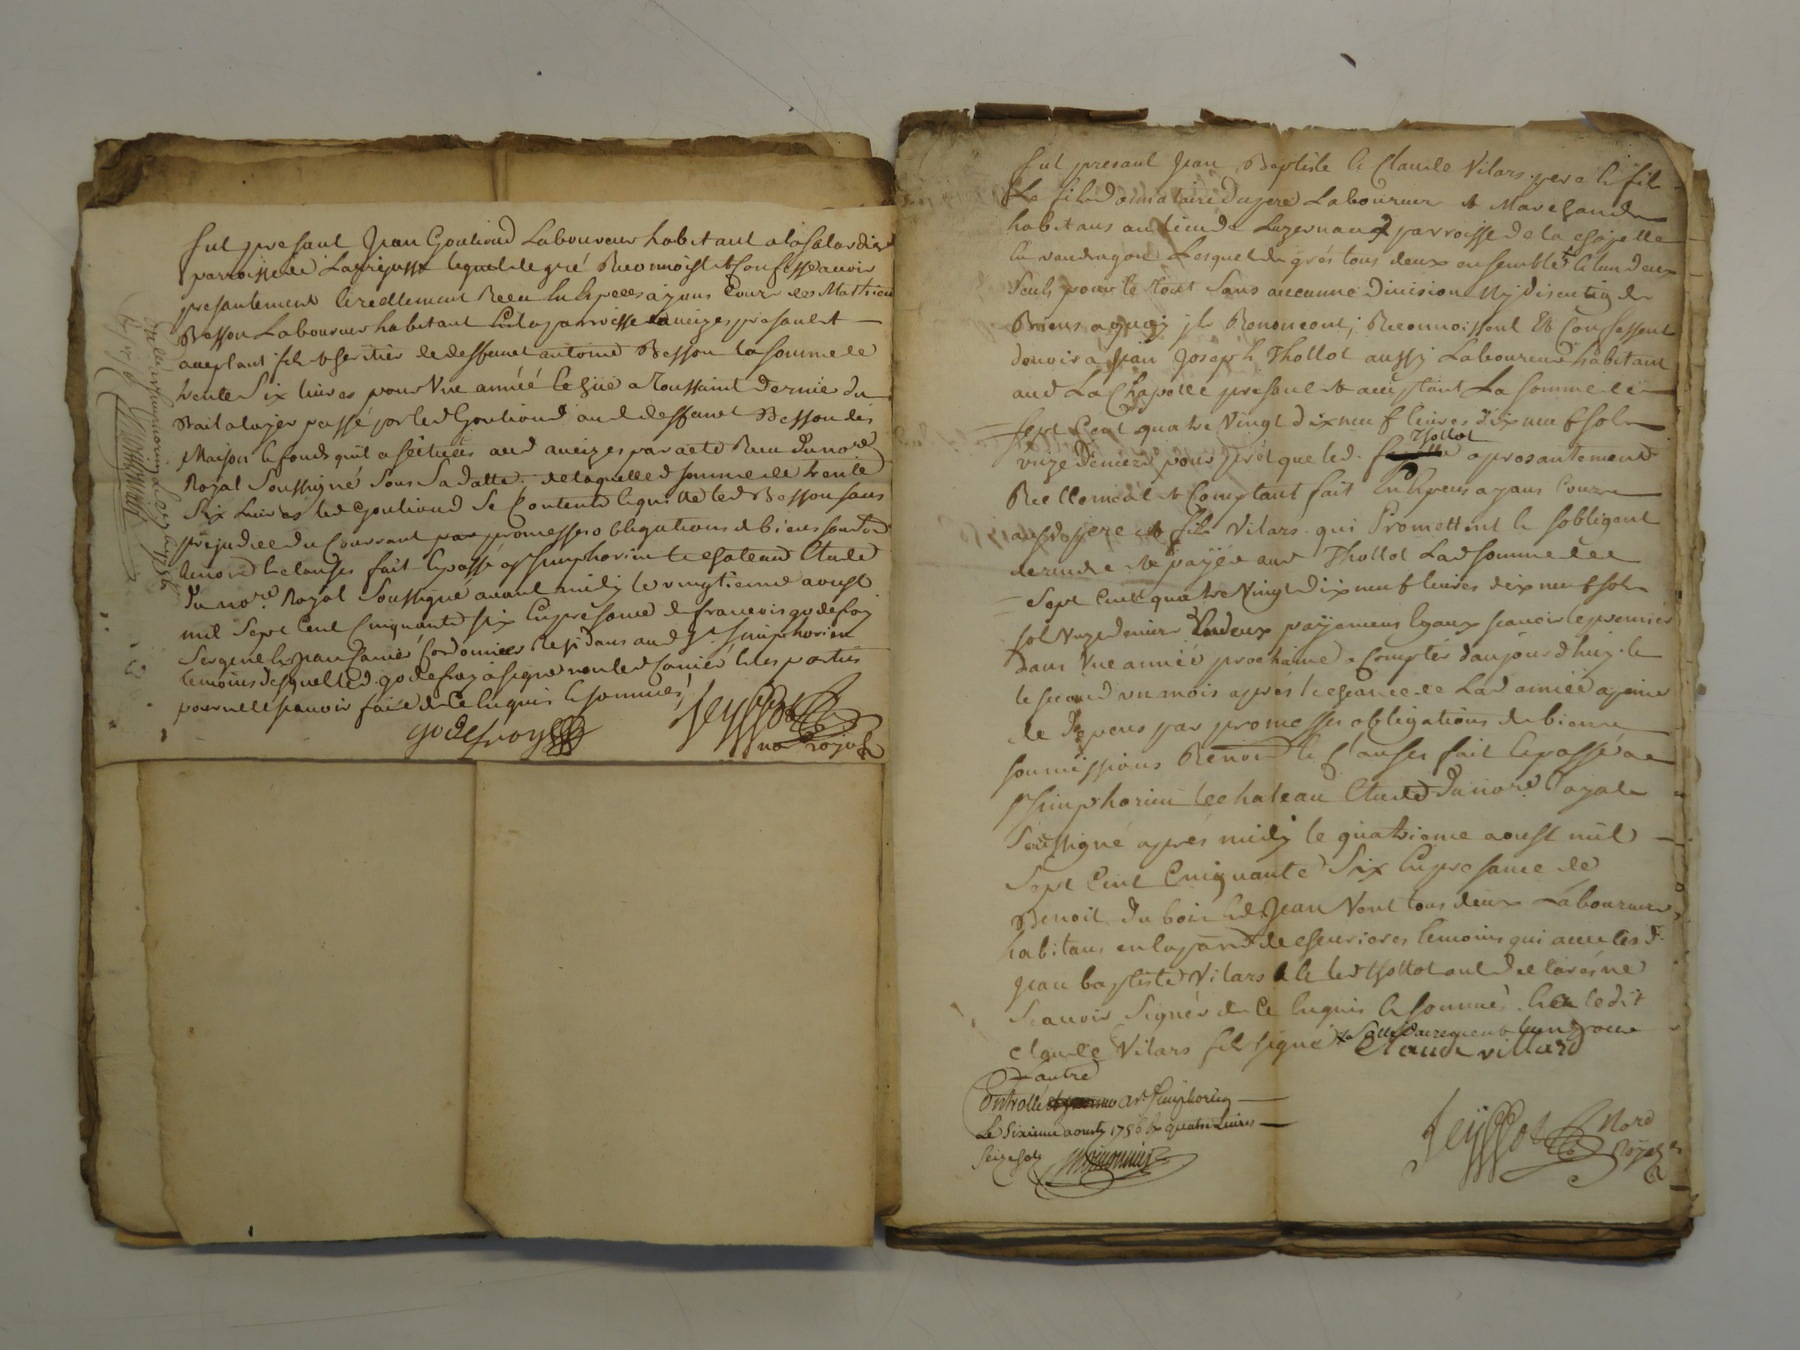 fut presant Jean Goutioud Laboureur habitant a la Salardiere
parroisse de Larajasse lequel de gré Reconnoist & Confesse avoir
presantement & reellement Receu En Especes ayans Cour de Mathieu
Besson Laboureur habitant En la parroisse aveizes presant &
aceptant fils & heritier de deffunct antoine Besson la somme de
trente Six livres pour Une année echüe a Toussaint dernie du
Bail a loyer passé par led Goutioud aud deffunct Besson des
Maison & fonds quil a scitués aud aveizes par acte Receu du nore
Royal Soussigné Sous Sa datte. de laquelle d somme de trente
Six Livres led Goutioud Se Contente & quitte led Besson sans
prejudice du Courrant par promesses obligations de biens soumd
Renond & clauses fait & passé a st Simphorien le chateau Etude
du nore. Royal Soussigné avant midy le vingtieme aoust
mil Sept Cent Cinquante six En presance de francois godefroy
Sergent & Jean Cordonnier Residans aud St Simphorien
temoins desquels led. godefroy a signé non led & les parties
pour ne le scavoir faire de Ce Enquis & sommés
godefroy
Jeyssot
nore royal
fut presant Jean Baptiste & Claude Vilars pere & fils
Le fils donnataire du pere Laboureur & Marchand
habitans au lieu de Luzernaud parroisse de la chapelle
en vaudragon Lesquels de grés tous deux ensemble & lun deux
Seuls pour le tout Sans aucunne division Ny discution de
Biens a quoy jls Renoncent; Reconnoissent & Confessent
devoir a Jean Joseph Thollot aussy Laboureur habitant
aud La Chapelle presant & aceptant La somme de
Sept Cent quatre Vingt dix neuf livres dix neuf sols
unze deniers pour prêt que led. Thollot a presantement
Reellement & Comptant fait En Especes ayans Cour
ausd pere & fils Vilars. qui Promettent & sobligent
de rendre & payer aud Thollot Lad somme de
Sept Cent quatre Vingt dix neuf livres dix neuf sols
sol Unze denier En deux payemens Egaux scavoir le premier
dans Une année prochaine a Compter daujourdhuy. le
le second un mois aprés lecheance de Lad année a peine
de depens par promesses obligations de biens
soumissions Renond & Clauses fait & passé a
st Simphorien le chateau Etude du nore. Royal
Soussigné aprés midy le quatrieme aoust mil
Sept Cent Cinquante Six En presance de
Benoit du bois & Jean Vont tous deux Laboureurs
habitans en la parre de temoins qui avec lesd.
Jean baptiste Vilars & led thollot ont declaré ne
Scavoir Signer de Ce Enquis & sommé & ledit
Claude Vilars fils signé x Sollidairement lun pour
lautre
Claude villard
Controllé a st Simphorien
Le Sixieme aoust 1756 R quatre Livres
Seize sols
Jeyssot
Nore
Royal